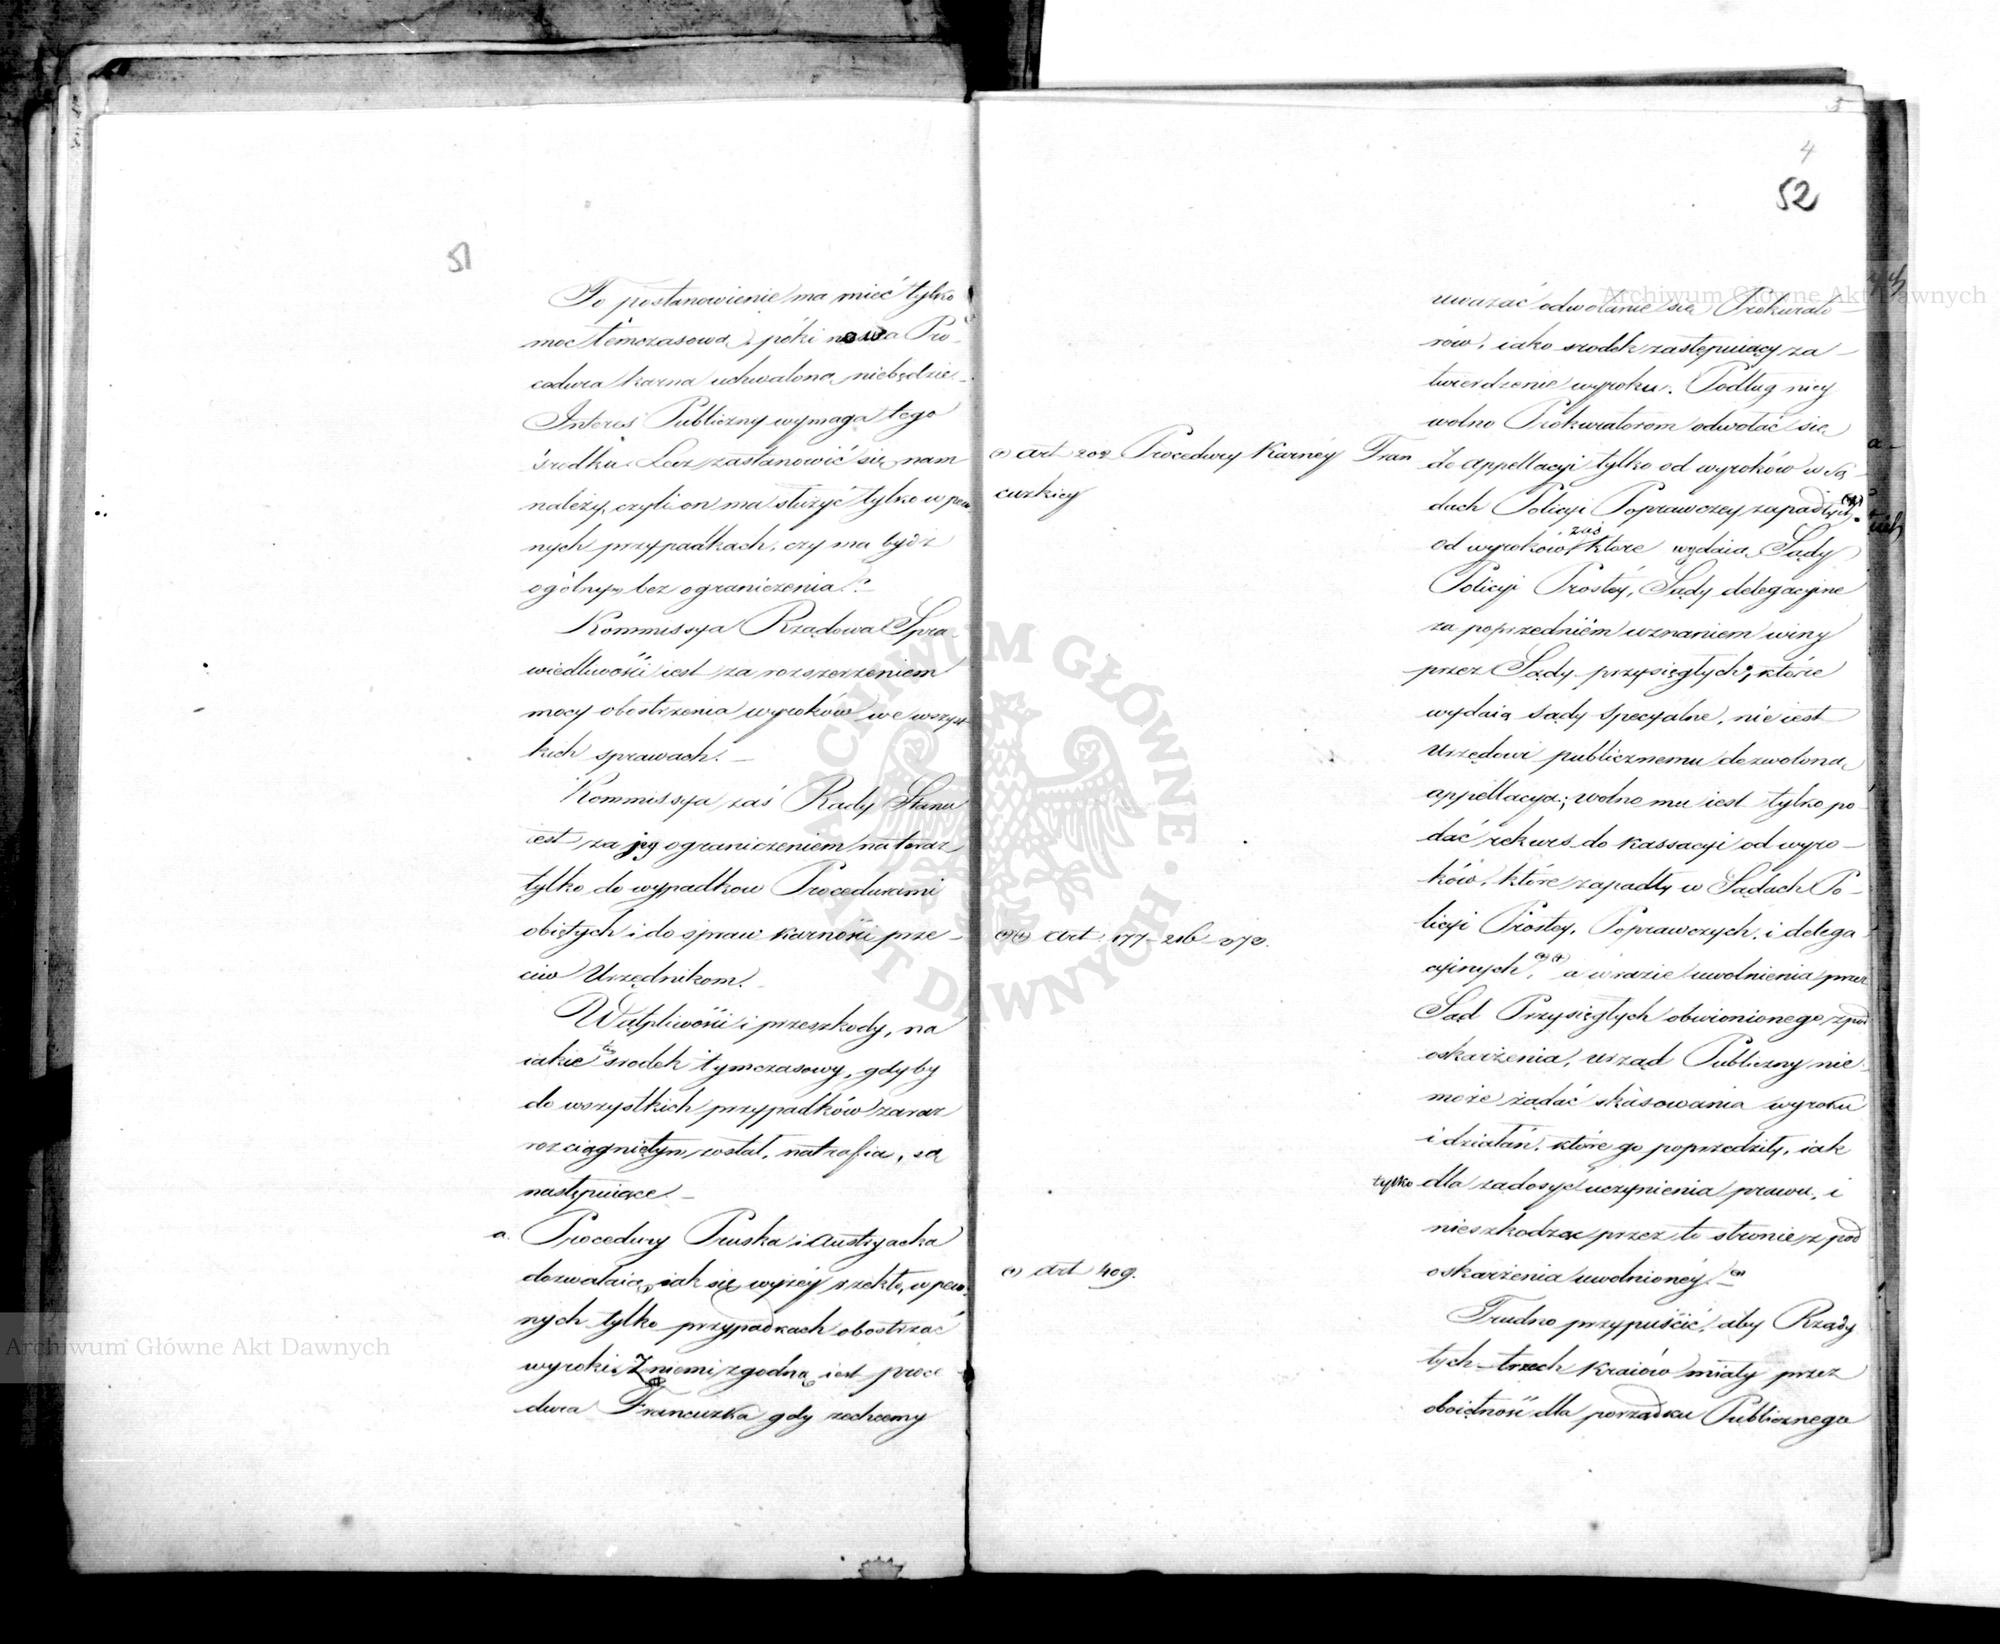 51
To postanowienie ma mieć tylko
moc témczasową, póki nowa Pro-
cedura karna uchwaloną niebędzie.
Interes Publiczny wymaga tego
środku. Lecz zastanowić się nam
należy, czyli on ma służyć tylko w pew
nych przypadkach, czy ma bydź
ogólnym bez ograniczenia?
Kommissya Rządowa Spra-
wiedliwości iest za rozszerzeniem
mocy obostrzenia wyroków we wszyst
kich sprawach. –
Kommissya zaś Rady Stanu
iest za jey ograniczeniem na teraz
tylko do wypadkow Procedurami
obiętych i do spraw karności prze-
ciw Urzędnikom.
Wątpliwości i przeszkody, na
iakie ten srodek tymczasowy, gdyby
do wszystkich przypadków zaraz
rozciągniętym został, natrafia, są
następuiące. –
a. Procedury Pruska i Austryacka
dozwalaią, iak się wyżéy rzekło, w pew-
nych tylko przypadkach obostrzać
wyroki. Z niemi zgodną iest proce
dura Francuzka gdy zechcemy
5
4
52
uważać odwołanie się Prokurato-
rów, iako srodek zastępuiący za-
twierdzenie wyroku. Podług niey
wolno Prokuratorom odwołać się
do appellacyi tylko od wyroków w Są
dach Policyi Poprawczey zapadłych (*).
od wyroków zaś które wydaią Sądy
Policyi Prostéy, Sądy delegacyine
za poprzedniém uznaniem winy
przez Sądy przysięgłych, które
wydaią sądy specyalne, nie iest
Urzędowi publicznemu dozwoloną
appellacya; wolno mu iest tylko po
dać rekurs do kassacyi od wyro-
ków, które zapadły w Sądach Po-
licyi Prostey, Poprawczych, i delega
cyinych, (*)(*) a w razie uwolnienia przez
Sąd Przysięgłych obwinionego z pod
oskarżenia, urząd Publiczny nie
może żądać skasowania wyroku
i działań, które go poprzedziły, iak
tylko dla zadosyć uczynienia prawu, i
nieszkodząc przez to stronie z pod
oskarżenia uwolnionéy. (*)
Trudno przypuścić, aby Rządy
tych trzech Kraiów miały przez
oboiętność dla porządku Publicznego
(*) Art 202 Procedury Karnéy Fran
cuzkiey
(*)(*) Art. 177–216–373.
(*) Art 409.
Archiwum Główne Akt Dawnych
Archiwum Główne Akt Dawnych
ARCHIWUM GŁÓWNE AKT DAWNYCH